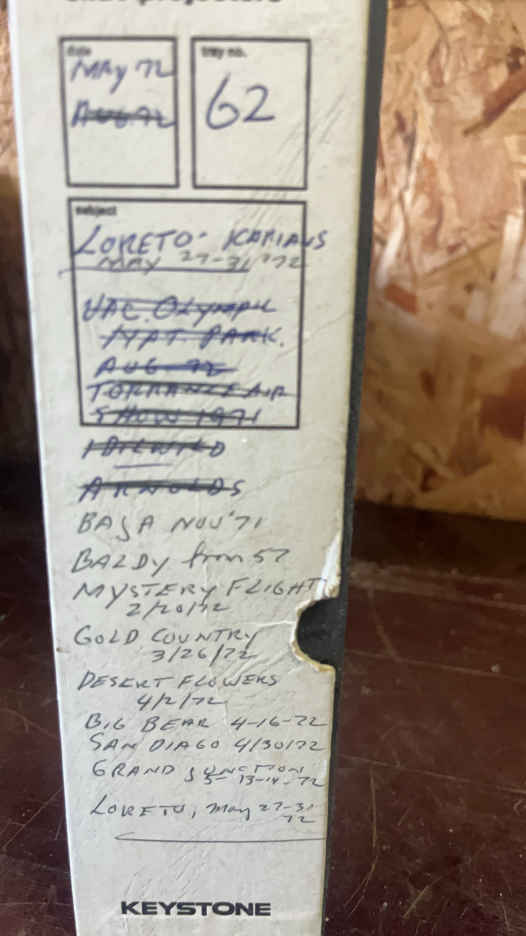 slide projectors
date
MAY 72
AUG 72
tray no.
62
subject
LORETO - ICARIANS
MAY 27-31 '72
VAC. OLYMPIC
NAT PARK.
AUG 72
TORRANCE AIR
SHOW 1971
IDLEWILD
ARNOLDS
BAJA NOV '71
BALDY from 57
MYSTERY FLIGHT
2/20/72
GOLD COUNTRY
3/26/72
DESERT FLOWERS
4/2/72
BIG BEAR 4-16-72
SAN DIAGO 4/30/72
GRAND JUNCTION
5-13-14-72
LORETO, May 27-31
72
KEYSTONE